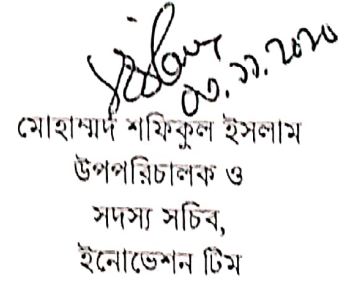 ০৩.১১.২০২০
মোহাম্মদ শফিকুল ইসলাম
উপপরিচালক ও
সদস্য সচিব,
ইনোভেশন টিম